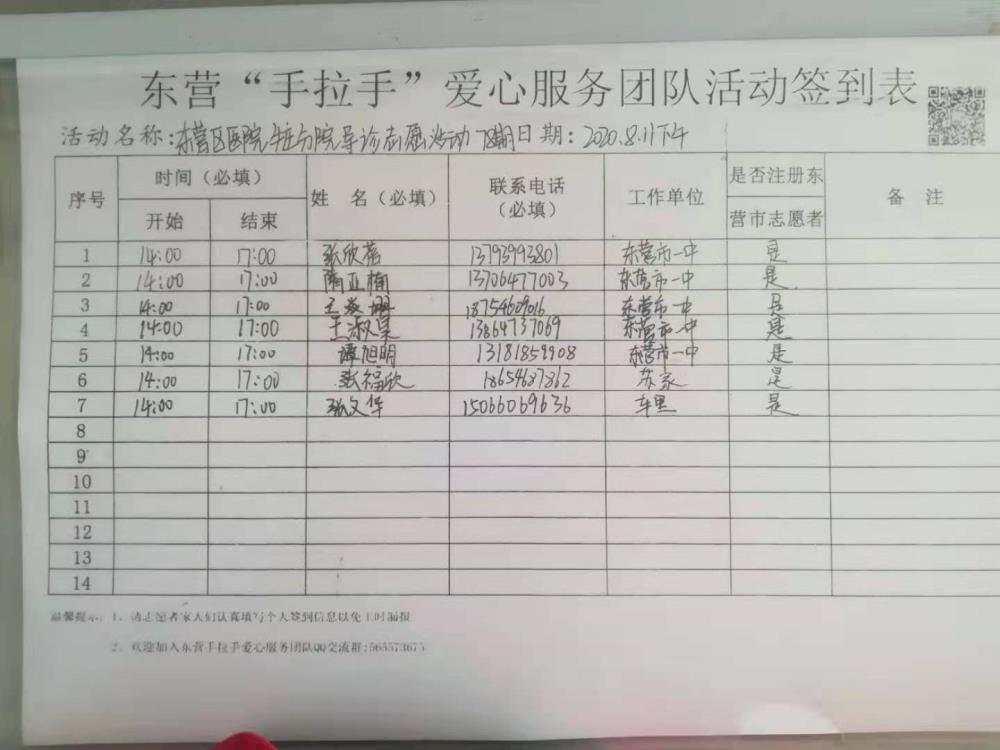 东营“手拉手”爱心服务团队活动签到表
活动名称:东营区医院 分院导诊志愿活动 78期 日期:2020.8.11下午
序号 时间(必填) 姓 名(必填) 联系电话(必填) 工作单位 是否注册东营市志愿者 备 注
开始 结束
1 14:00 17:00 张欣蓓 13793993801 东营市一中 是
2 14:00 17:00 隋正楠 13706477003 东营市一中 是
3 14:00 17:00 王 18754609016 东营市一中 是
4 14:00 17:00 王淑昊 13864737069 东营市一中 是
5 14:00 17:00 谭旭明 13181859908 东营市一中 是
6 14:00 17:00 张福欣 18654687862 苏家 是
7 14:00 17:00 张文华 15066069636 车里 是
8
9
10
11
12
13
14
温馨提示:1、请志愿者家人们认真填写个人签到信息以免工时漏报
2、欢迎加入东营手拉手爱心服务团队QQ交流群:565573675